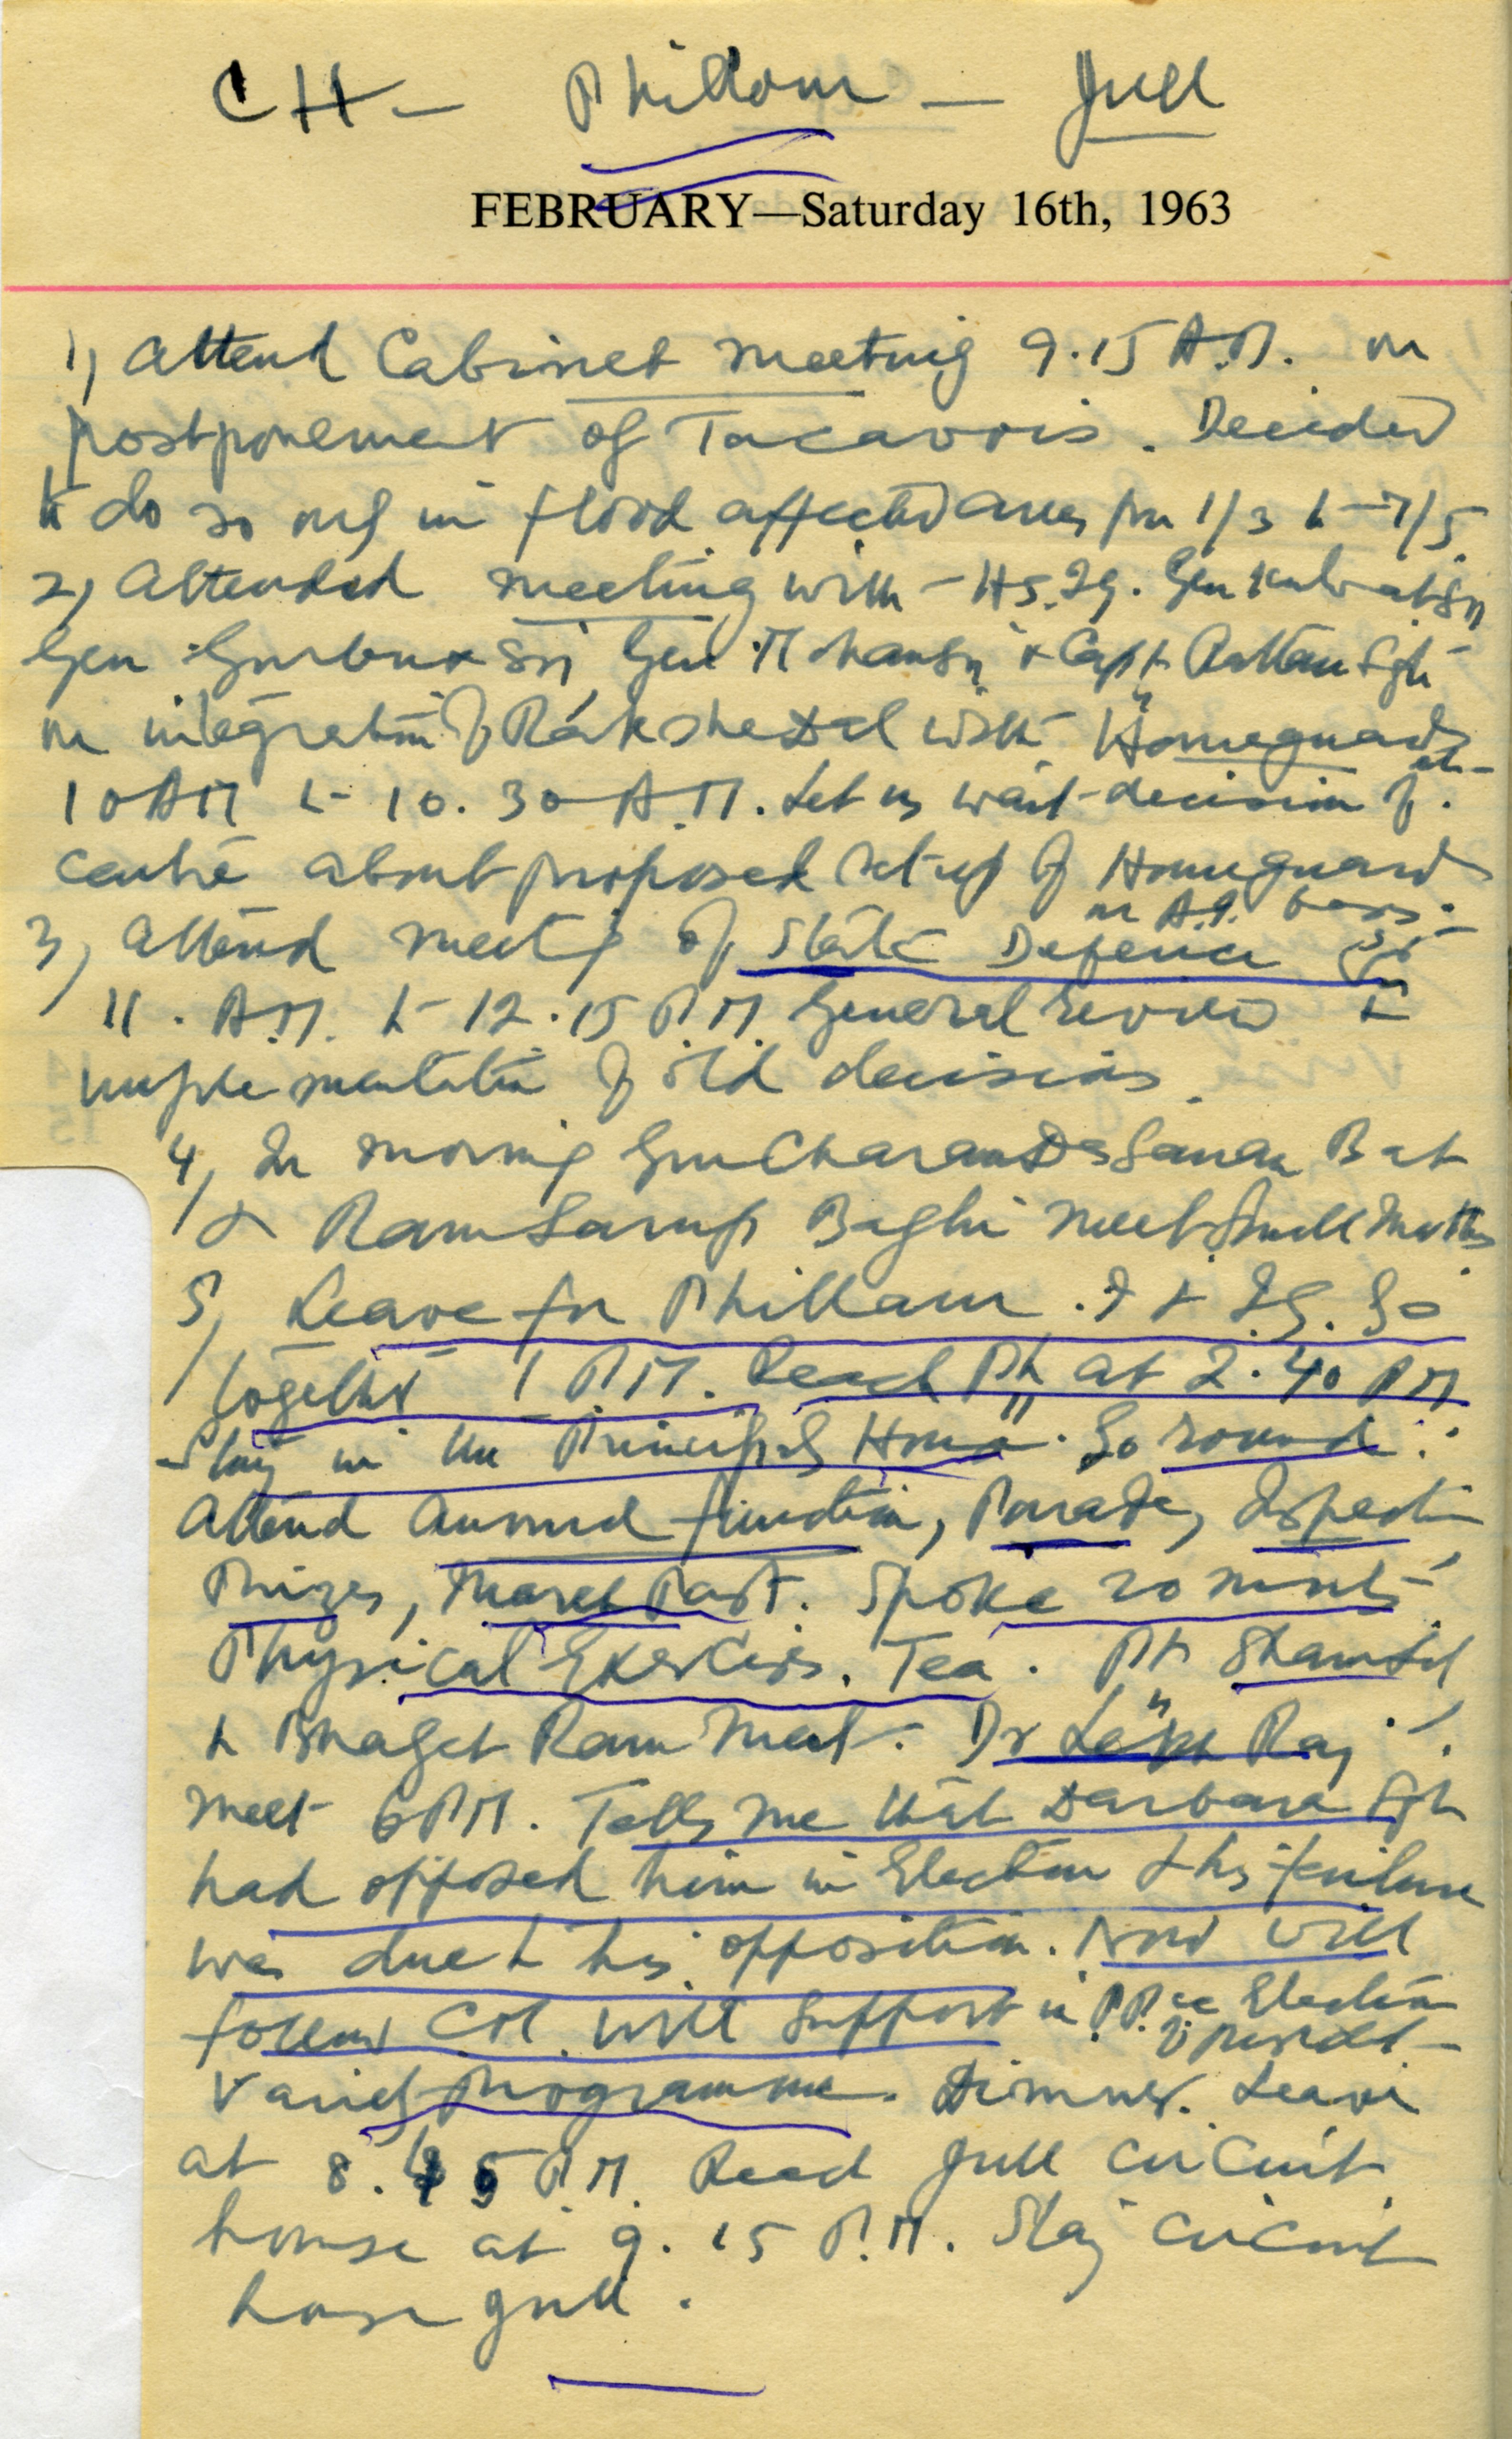 CH - Phillaur - Jull
FEBRUARY—Saturday 16th, 1963
1) Attend Cabinet meeting 9.15 A.M. on
postponement of Taccavis. Decided
to do so only in flood affected areas from 1/3 to 7/5.
2) Attended meeting with - HS. IG. Gen
Gen Gurbux Sgh Gen & Capt Rattan Sgh
on integration of Raksha Dal with Homeguards
10 AM to 10.30 A.M. Let us wait decision of
centre about proposed set-up of Homeguards
on A.I. basis.
3) Attend meeting of State Defence
11. A.M. to 12.15 P.M. General review &
implementation of old decisions.
4) In morning GurCharanDas
& RamSarup Baghi meet. Small matters
5) Leave for Phillaur. I & I.G. Go
together 1 P.M. Reach Ph at 2.40 PM
Stay in the Principal's House. Go round.
Attend Annual function, Parade, Inspection
Prizes, March Past. Spoke 20 minutes
Physical Exercises. Tea. Pt ShamLal
& Bhagat Ram Meet. Dr Raj
meet 6 P.M. Tells me that Darbara Sgh
had opposed him in Election & his failure
was due to his opposition. Now will
follow CM. will Support in PPcc Election
Variety programme. Dinner. Leave
at 8.45 P.M. Reach Jull Circuit
house at 9.15 P.M. Stay Circuit
house Jull.